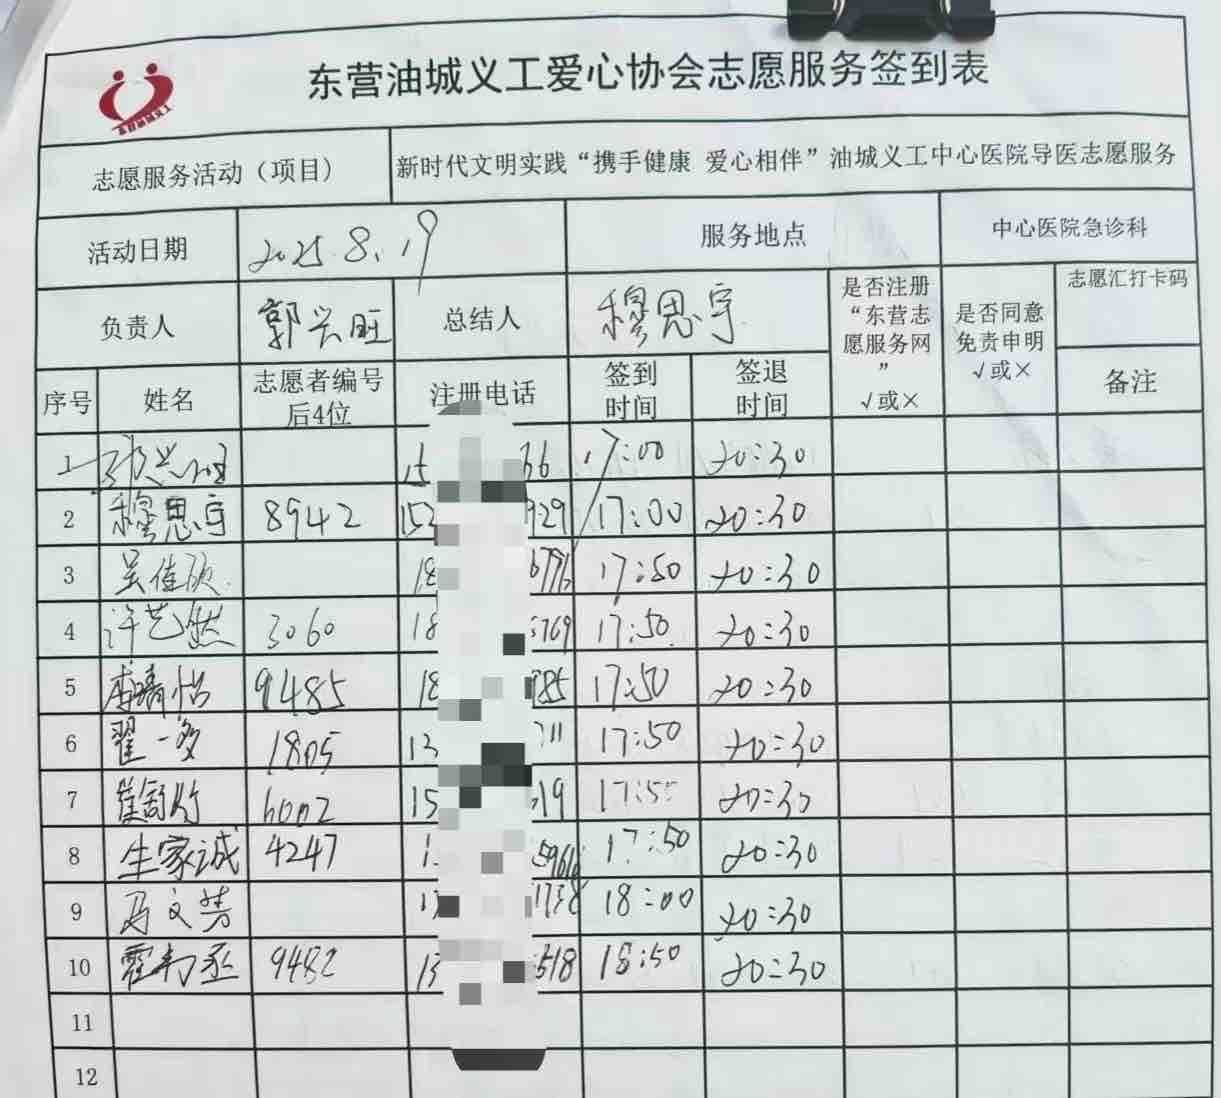 东营油城义工爱心协会志愿服务签到表
志愿服务活动（项目） 新时代文明实践“携手健康 爱心相伴”油城义工中心医院导医志愿服务
活动日期 2025.8.19 服务地点 中心医院急诊科
负责人 郭兴旺 总结人 穆思宇 是否注册“东营志愿服务网” √或× 是否同意免责申明 √或× 志愿汇打卡码
序号 姓名 志愿者编号后4位 注册电话 签到时间 签退时间 备注
1 15 66 17:00 20:30
2 穆思宇 8942 152 929 17:00 20:30
3 18 17:50 20:30
4 许艺然 3060 18 5769 17:50 20:30
5 9485 18 785 17:50 20:30
6 翟一多 1805 13 711 17:50 20:30
7 6002 15 619 17:50 20:30
8 生家诚 4247 17:50 20:30
9 18:00 20:30
10 9482 13 518 18:50 20:30
11
12